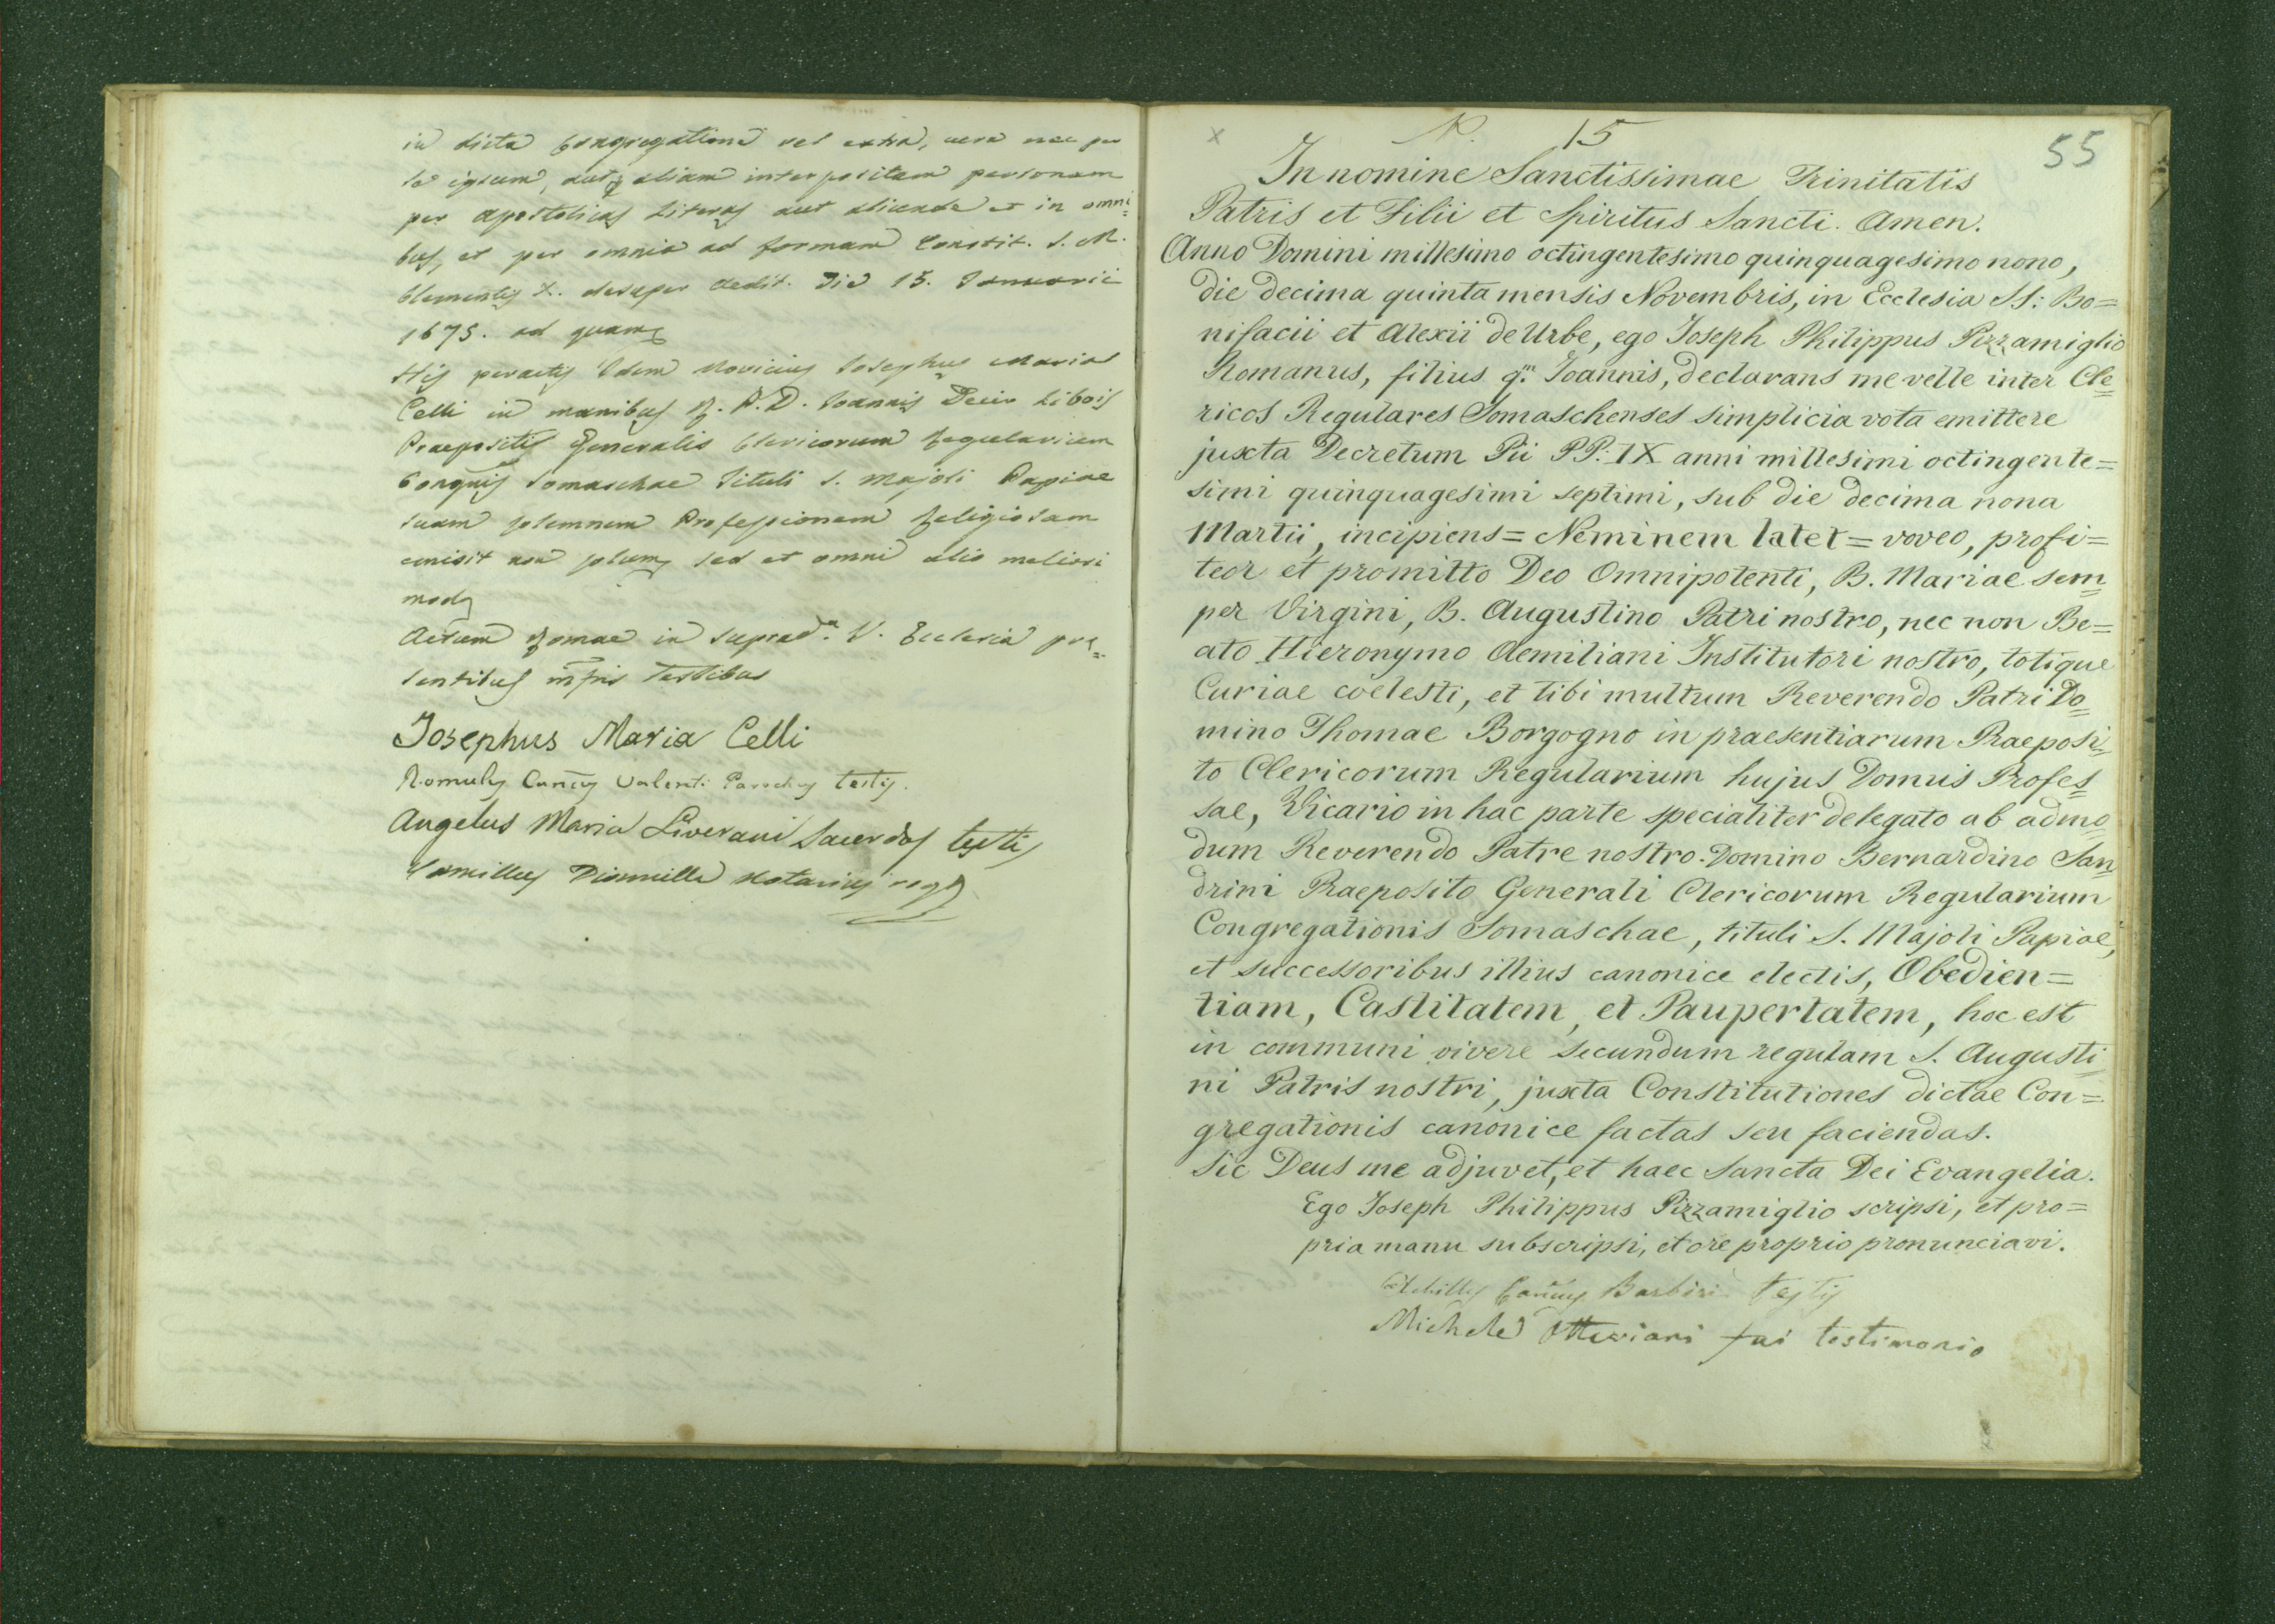 in dicta Congregatione vel extra, aera nec per
se ipsum, aut aliam interpositam personam
per apostolicas Literas aut aliunde et in omni=
bus, et per omnia ad formam Constit. S. M.
Clementis X. desuper aedit. Die 15. Januarii
1675. ad quam
His peractis Idem Novicius Josephus Maria
Celli in manibus R. P. D. Joannis Decio Libois
Praepositi Generalis Clericorum Regularium
Congnis Somaschae Tituli S. Majoli Papiae
suam solemnem Professionem Religiosam
emisit non solum sed et omni alio meliori
mod
Actum Romae in suprad.a V. Ecclesia prę=
sentibus infris Testibus
Josephus Maria Celli
Romulus Cancus Valenti Parochus testis.
Angelus Maria Liverani Sacerdos testis
Camillus Diamilla Notarius rog
N. 15
55
x
In nomine Sanctissimae Trinitatis
Patris et Filii et Spiritus Sancti. Amen.
Anno Domini millesimo octingentesimo quinquagesimo nono,
die decima quinta mensis Novembris, in Ecclesia SS: Bo=
nifacii et Alexii de Urbe, ego Joseph Philippus Pizzamiglio
Romanus, filius q.m Joannis, declarans me velle inter Cle=
ricos Regulares Somaschenses simplicia vota emittere
juxta Decretum Pii PP: IX anni millesimi octingente=
simi quinquagesimi septimi, sub die decima nona
Martii, incipiens = Neminem latet = voveo, profi=
teor et promitto Deo Omnipotenti, B. Mariae sem=
per Virgini, B. Augustino Patri nostro, nec non Be=
ato Hieronymo Aemiliani Institutori nostro, totique
Curiae coelesti, et tibi multum Reverendo Patri Do=
mino Thomae Borgogno in praesentiarum Praeposi=
to Clericorum Regularium hujus Domus Profes=
sae, Vicario in hac parte specialiter delegato ab admo=
dum Reverendo Patre nostro Domino Bernardino San=
drini Praeposito Generali Clericorum Regularium
Congregationis Somaschae, tituli S. Majoli Papiae,
et successoribus illius canonice electis, Obedien=
tiam, Castitatem, et Paupertatem, hoc est
in communi vivere secundum regulam S. Augusti=
ni Patris nostri, juxta Constitutiones dictae Con=
gregationis canonice factas seu faciendas.
Sic Deus me adjuvet, et haec Sancta Dei Evangelia.
Ego Joseph Philippus Pizzamiglio scripsi, et pro=
pria manu subscripsi, et ore proprio pronunciavi.
Achilles Cancus Barbiri testis
Michele Ottaviani fui testimonio